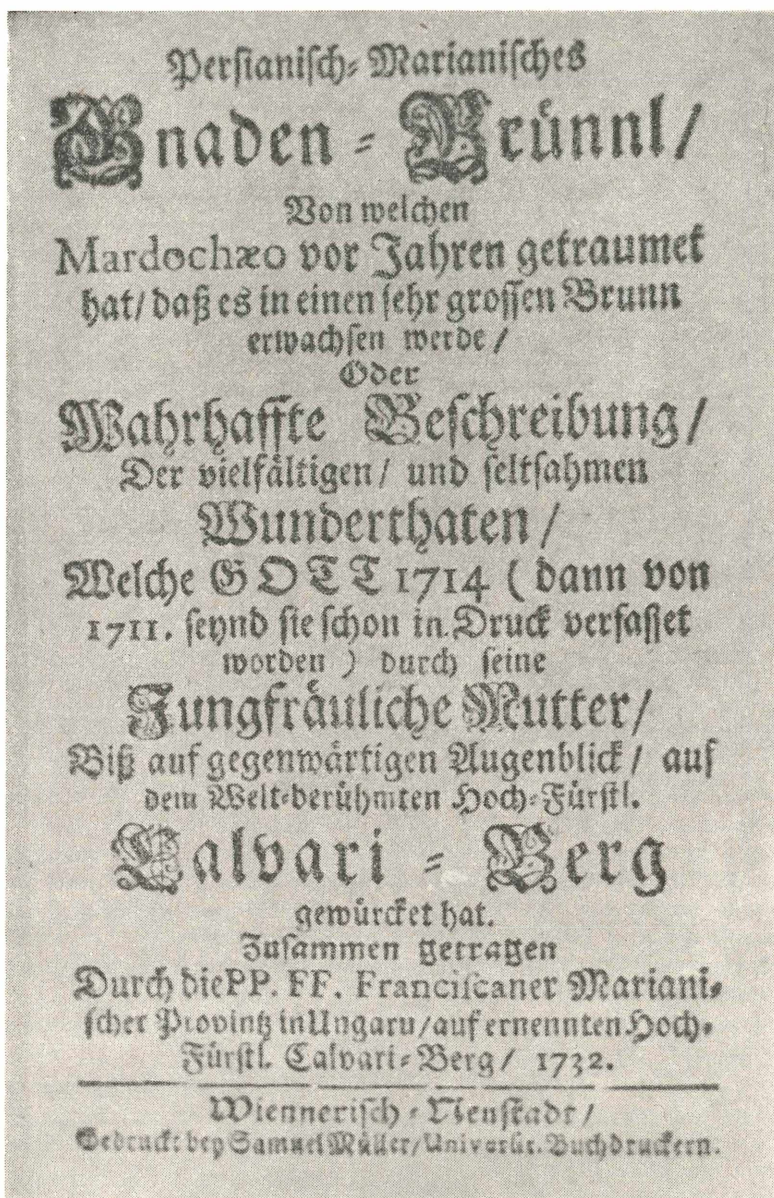 Persianisch-Marianisches
Gnaden-Brünnl/
Von welchen
Mardochæo vor Jahren getraumet
hat/ daß es in einen sehr grossen Brunn
erwachsen werde/
Oder
Wahrhaffte Beschreibung/
Der vielfältigen/ und seltsahmen
Wunderthaten/
Welche GOTT 1714 (dann von
1711. seynd sie schon in Druck verfasset
worden) durch seine
Jungfräuliche Mutter/
Biß auf gegenwärtigen Augenblick/ auf
dem Welt-berühmten Hoch-Fürstl.
Calvari-Berg
gewürcket hat.
Zusammen getragen
Durch die PP. FF. Franciscaner Mariani-
scher Provintz in Ungarn/ auf ernennten Hoch-
Fürstl. Calvari-Berg/ 1732.
Wiennerisch-Neustadt/
Gedruckt bey Samuel Müller/ Universit. Buchdruckern.